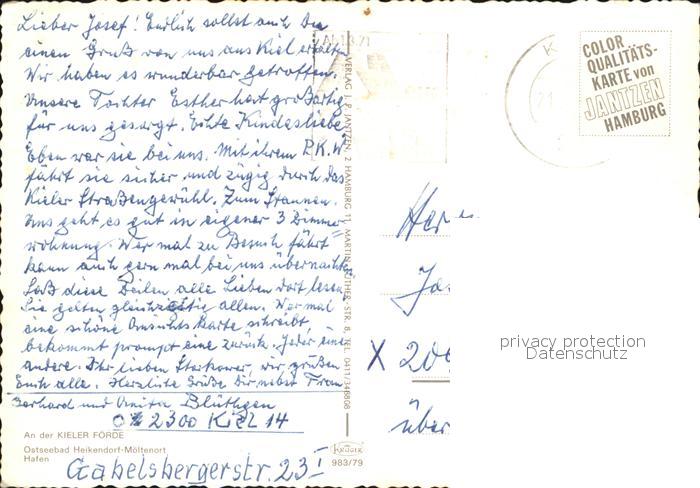 Lieber Josef! Endlich sollst auch Du
einen Gruß von uns aus Kiel erhalten
Wir haben es wunderbar getroffen.
Unsere Tochter Esther hat großartig
für uns gesorgt. Echte Kindesliebe
Eben war sie bei uns. Mit ihrem P.K.W.
fährt sie sicher und zügig durch das
Kieler Straßengewühl. Zum Staunen.
Uns geht es gut in eigener 3 Zimmer
wohnung. Wer mal zu Besuch fährt
kann auch gern mal bei uns übernachten
Laß diese Zeilen alle Lieben dort lesen
Sie gelten gleichzeitig allen. Wer mal
eine schöne Ansichtskarte schreibt,
bekommt prompt eine zurück. Jeder eine
andere. Ihr lieben Storkower, wir grüßen
Euch alle. Herzliche Grüße Dir nebst Frau
Gerhard und Anita Blüthgen
2300 Kiel 14
Gabelsbergerstr. 23 I
An der KIELER FÖRDE
Ostseebad Heikendorf-Möltenort
Hafen
VERLAG J. P. JANTZEN, 2 HAMBURG 11, MARTIN-LUTHER-STR. 8, TEL. 0411/346808
KRÜGER
983/79
COLOR
QUALITÄTS-
KARTE von
JANTZEN
HAMBURG
X 20
über
privacy protection
Datenschutz